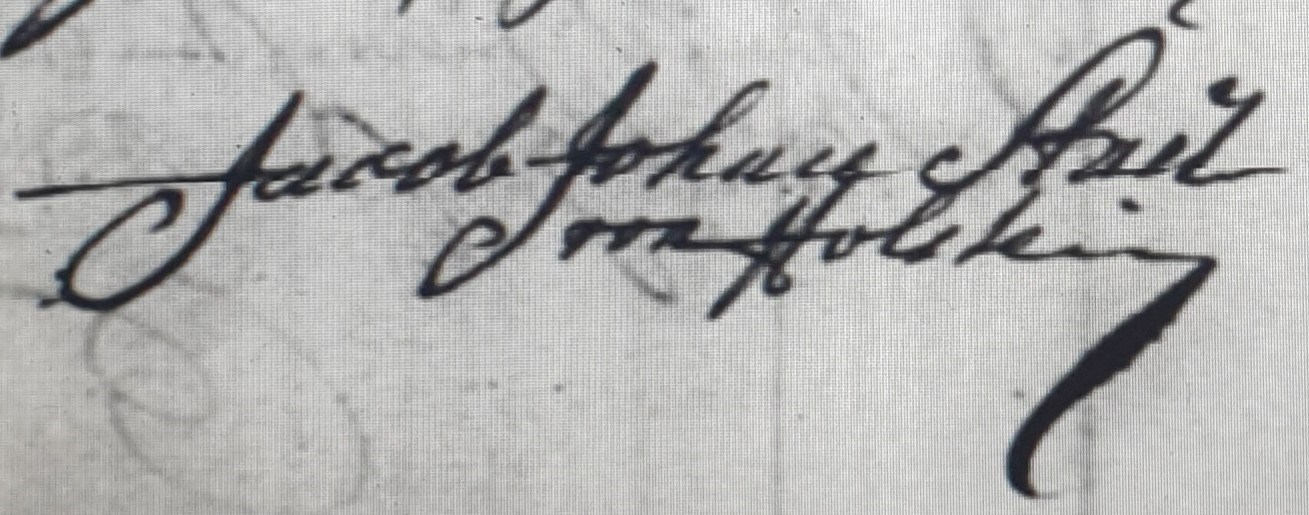 Jacob Johan Staël
von Holstein